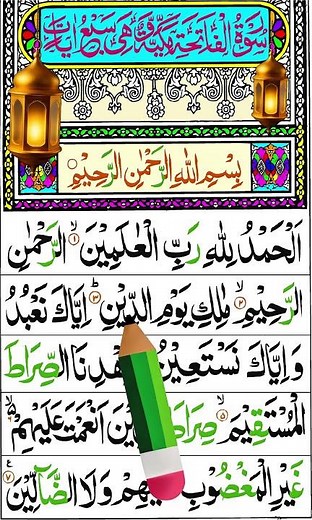 سُوْرَةُ الْفَاتِحَةِ مَكِّيَّةٌ وَّهِيَ سَبْعُ اٰيَاتٍ
بِسْمِ اللهِ الرَّحْمٰنِ الرَّحِيْمِ
اَلْحَمْدُ لِلّٰهِ رَبِّ الْعٰلَمِيْنَ ۙ‏۱ الرَّحْمٰنِ
الرَّحِيْمِ ۙ‏۲ مٰلِكِ يَوْمِ الدِّيْنِ ؕ‏۳ اِيَّاكَ نَعْبُدُ
وَاِيَّاكَ نَسْتَعِيْنُ هْدِنَا الصِّرَاطَ
الْمُسْتَقِيْمَ ۙ‏۵ صِرَاطَ يْنَ اَنْعَمْتَ عَلَيْهِمْ ۙ‏۶
غَيْرِ الْمَغْضُوْبِ يْهِمْ وَلَا الضَّآلِّيْنَ ۷